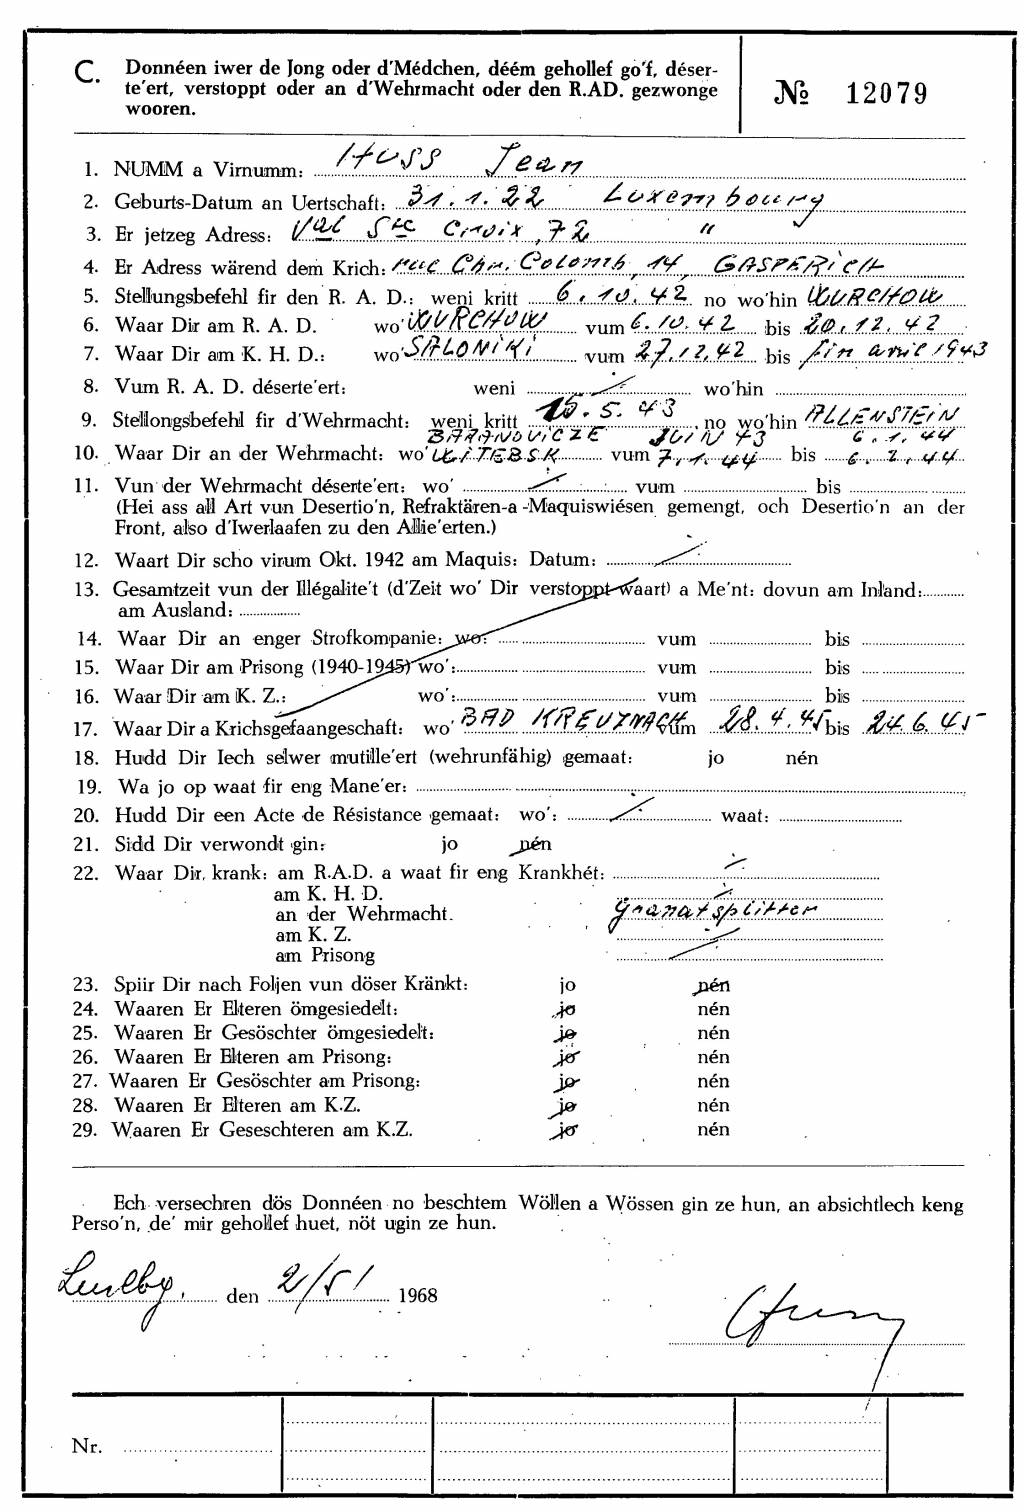 C. Donnéen iwer de Jong oder d'Médchen, déém gehollef go'f, déser-
te'ert, verstoppt oder an d'Wehrmacht oder den R.AD. gezwonge
wooren.
№ 12079
1. NUMM a Virnumm: HUSS Jean
2. Geburts-Datum an Uertschaft: 31.1.22 Luxembourg
3. Er jetzeg Adress: Val Ste Croix, 72 "
4. Er Adress wärend dem Krich: rue Chr. Colomb, 14, GASPERICH
5. Stellungsbefehl fir den R. A. D.: weni kritt 6.10.42 no wo'hin WURCHOW
6. Waar Dir am R. A. D. wo' WURCHOW vum 6.10.42 bis 20.12.42
7. Waar Dir am K. H. D.: wo' SALONIKI vum 27.12.42 bis fin avril 1943
8. Vum R. A. D. déserte'ert: weni wo'hin
9. Stellongsbefehl fir d'Wehrmacht: weni kritt 15.5.43 no wo'hin ALLENSTEIN
BARANOVICZE JUIN 43 6.1.44
10. Waar Dir an der Wehrmacht: wo' WITEBSK vum 7.1.44 bis 6.2.44
11. Vun der Wehrmacht déserte'ert: wo' vum bis
(Hei ass all Art vun Desertio'n, Refraktären-a -Maquiswiésen gemengt, och Desertio'n an der
Front, also d'Iwerlaafen zu den Allie'erten.)
12. Waart Dir scho virum Okt. 1942 am Maquis: Datum:
13. Gesamtzeit vun der Illégalite't (d'Zeit wo' Dir verstoppt waart) a Me'nt: dovun am Inland:
am Ausland:
14. Waar Dir an enger Strofkompanie: wo: vum bis
15. Waar Dir am Prisong (1940-1945) wo': vum bis
16. Waar Dir am K. Z.: wo': vum bis
17. Waar Dir a Krichsgefaangeschaft: wo' BAD KREUZNACH vum 28.4.45 bis 24.6.45
18. Hudd Dir Iech selwer mutille'ert (wehrunfähig) gemaat: jo nén
19. Wa jo op waat fir eng Mane'er:
20. Hudd Dir een Acte de Résistance gemaat: wo': waat:
21. Sidd Dir verwondt gin: jo nén
22. Waar Dir krank: am R.A.D. a waat fir eng Krankhét:
am K. H. D.
an der Wehrmacht. Granatsplitter
am K. Z.
am Prisong
23. Spiir Dir nach Foljen vun döser Kränkt: jo nén
24. Waaren Er Elteren ömgesiedelt: jo nén
25. Waaren Er Gesöschter ömgesiedelt: jo nén
26. Waaren Er Elteren am Prisong: jo nén
27. Waaren Er Gesöschter am Prisong: jo nén
28. Waaren Er Elteren am K.Z. jo nén
29. Waaren Er Geseschteren am K.Z. jo nén
Ech versechren dös Donnéen no beschtem Wöllen a Wössen gin ze hun, an absichtlech keng
Perso'n, de' mir gehollef huet, nöt ugin ze hun.
den 2/5/ 1968
Nr.